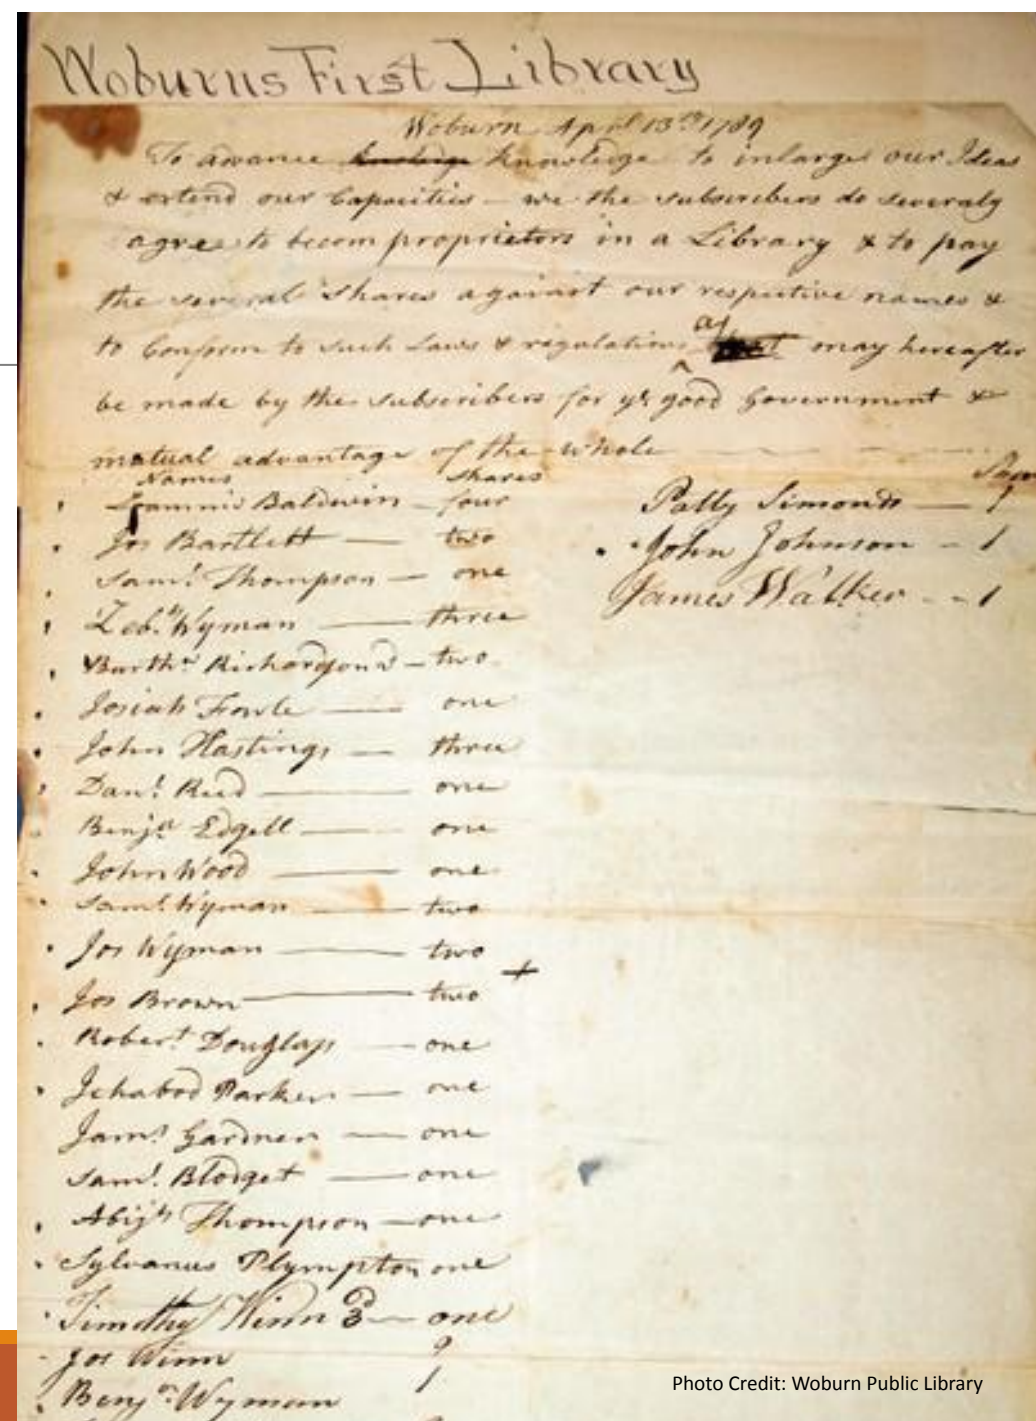 Woburns First Library
Woburn Apr^l 13^th 1789
To avance knowledge to inlarge our Ideas
& extend our Capacities – we the subscribers do severaly
agree to becom proprietors in a Library & to pay
the several Shares against our respective names &
to Conform to such Laws & regulations as may hereafter
be made by the subscribers for y^e good Government &
mutual advantage of the whole
Names Shares
Loammi Baldwin – four
Jos Bartlett — two
Sam^l Thompson — one
Zeb^n Wyman — three
Barth^w Richardson — two
Josiah Fowle — one
John Hastings — three
Dan^l Reed — one
Benj^a Edgell — one
John Wood — one
Sam^l Wyman — two
Jos Wyman — two
Jos Brown — two +
Robert Douglass — one
Ichabod Parker — one
Jam^s Gardner — one
Sam^l Blodget — one
Abij^h Thompson — one
Sylvanus Plympton one
Timothy Winn 3^d — one
Jos Winn
Benj^n Wyman 1
Patty Simonds — 1
John Johnson – 1
James Walker - - 1
Photo Credit: Woburn Public Library